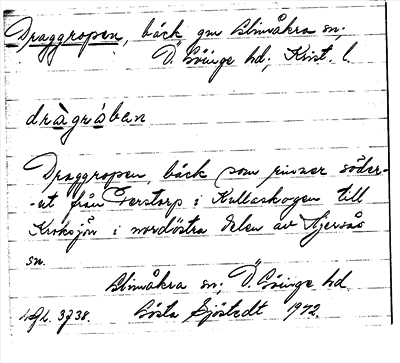 Draggropen, bäck gm Glimåkra sn;
Ö. Göinge hd; Krist. l.
dràgró̱ban
Draggropen, bäck som rinner söder-
-ut från Gerstorp i Kullaskogen till
Kroksjön i nordöstra delen av Hjersås
sn.
Glimåkra sn; Ö. Göinge hd.
Gösta Sjöstedt 1972.
3738.